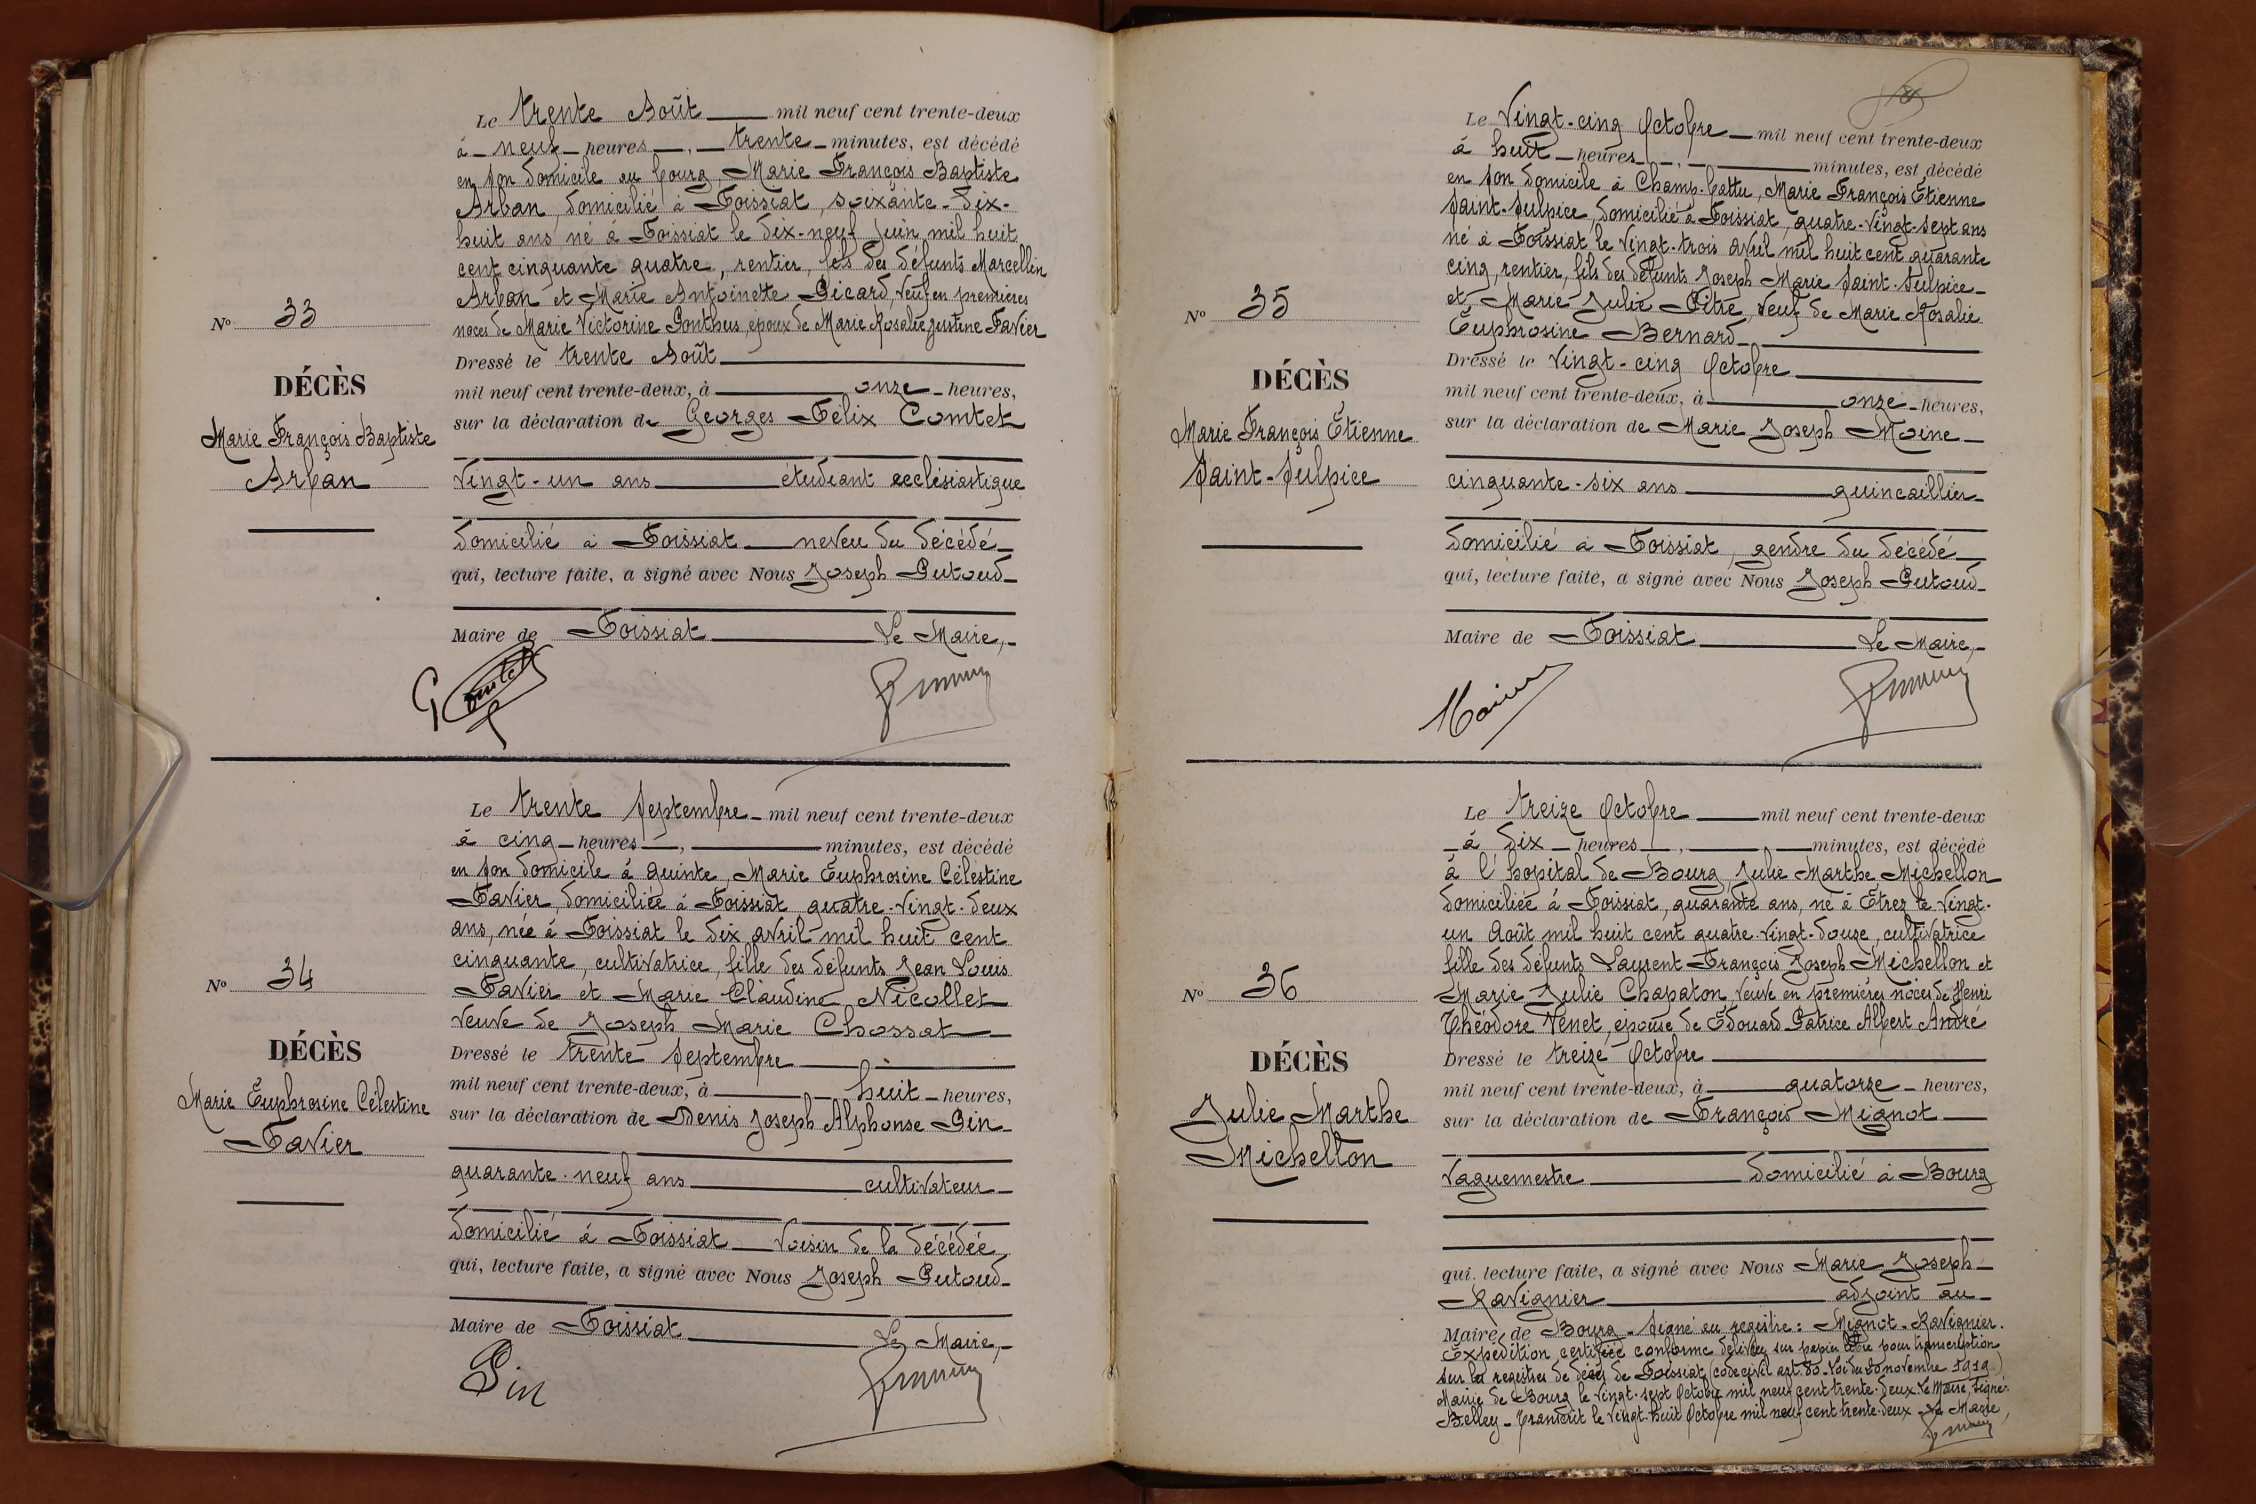 Le trente Août mil neuf cent trente-deux
à neuf heures, trente minutes, est décédé
en son domicile au bourg, Marie François Baptiste
Arban, domicilié à Foissiat, soixante-dix-
huit ans né à Foissiat le dix-neuf Juin mil huit
cent cinquante quatre, rentier, fils des défunts Marcellin
Arban et Marie Antoinette Picard, veuf en premières
noces de Marie Victorine Ponthus, époux de Marie Rosalie Justine Favier
Nº 33
DÉCÈS
Marie François Baptiste
Arban
Dressé le trente Août
mil neuf cent trente-deux, à onze heures,
sur la déclaration de Georges Félix Comtet
vingt-un ans étudiant ecclésiastique
domicilié à Foissiat neveu du décédé
qui, lecture faite, a signé avec Nous Joseph Putoud
Maire de Foissiat Le Maire,
G Comtet
Le trente Septembre mil neuf cent trente-deux
à cinq heures, minutes, est décédé
en son domicile à Quinte, Marie Euphrosine Célestine
Favier, domiciliée à Foissiat quatre-vingt-deux
ans, née à Foissiat le dix avril mil huit cent
cinquante, cultivatrice, fille des défunts Jean Louis
Favier et Marie Claudine Nicollet
veuve de Joseph Marie Chossat
Nº 34
DÉCÈS
Marie Euphrosine Célestine
Favier
Dressé le trente Septembre
mil neuf cent trente-deux, à huit heures,
sur la déclaration de Denis Joseph Alphonse Pin
quarante-neuf ans cultivateur
domicilié à Foissiat voisin de la décédée
qui, lecture faite, a signé avec Nous Joseph Putoud
Maire de Foissiat Le Maire,
Pin
Le vingt-cinq Octobre mil neuf cent trente-deux
à huit heures, minutes, est décédé
en son domicile à Champ-battu, Marie François Etienne
Saint-Sulpice, domicilié à Foissiat, quatre-vingt-sept ans
né à Foissiat le vingt-trois avril mil huit cent quarante
cinq, rentier, fils des défunts Joseph Marie Saint-Sulpice
et Marie Julie Pitre, veuf de Marie Rosalie
Euphrosine Bernard
Nº 35
DÉCÈS
Marie François Etienne
Saint-Sulpice
Dressé le vingt-cinq Octobre
mil neuf cent trente-deux, à onze heures,
sur la déclaration de Marie Joseph Moine
cinquante-six ans quincaillier
domicilié à Foissiat, gendre du décédé
qui, lecture faite, a signé avec Nous Joseph Putoud
Maire de Foissiat Le Maire,
Moine
Le treize Octobre mil neuf cent trente-deux
à dix heures, minutes, est décédé
à l'hopital de Bourg, Julie Marthe Michellon
domiciliée à Foissiat, quarante ans, né à Etrez le vingt-
un Août mil huit cent quatre-vingt-douze, cultivatrice
fille des défunts Laurent François Joseph Michellon et
Marie Julie Chapaton, veuve en premières noces de Henri
Théodore Venet, épouse de Edouard Patrice Albert André
Nº 36
DÉCÈS
Julie Marthe
Michellon
Dressé le treize Octobre
mil neuf cent trente-deux, à quatorze heures,
sur la déclaration de François Mignot
vaguemestre domicilié à Bourg
qui, lecture faite, a signé avec Nous Marie Joseph
Ravignier adjoint au
Maire de Bourg. Signé au registre : Mignot. Ravignier.
Expédition certifiée conforme délivrée sur papier libre pour transcription
sur les registres de décès de Foissiat (code civil art. 80. Loi du 20 novembre 1919)
Mairie de Bourg le vingt-sept Octobre mil neuf cent trente-deux. Le Maire, signé:
Belley - Transcrit le vingt-huit Octobre mil neuf cent trente-deux Le Maire,